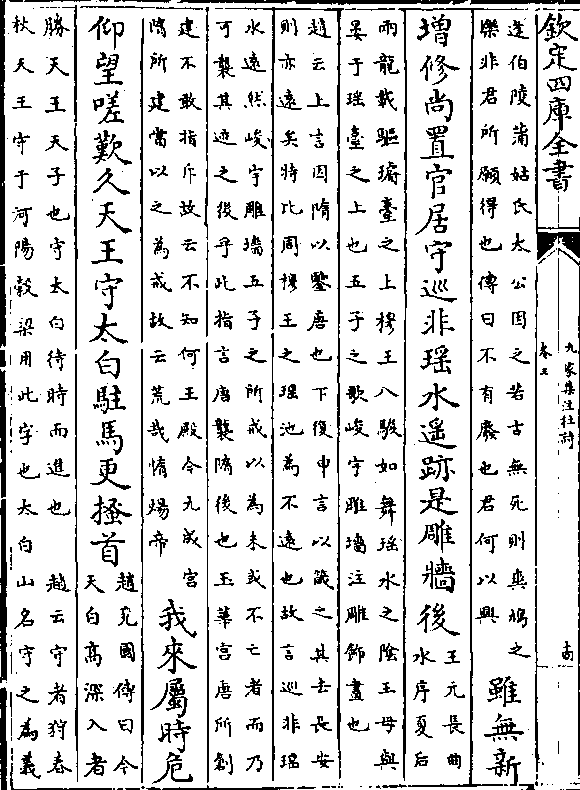 欽定四庫全書
九家集注杜詩
卷三
逄伯陵蒲姑氏大公因之若古無死則爽鳩之
樂非君所願得也傳曰不有廢也君何以興
雖無新
增修尚置官居守巡非瑶水遥跡是雕牆後
王元長曲
水序夏后
兩龍載驅璿臺之上穆王八駿如舞瑶水之陰王母與
晏于瑶臺之上也五子之歌峻宇雕墻注雕飾畫也
趙云上言因隋以鑒唐也下復申言以箴之其去長安
則亦遠矣特比周穆王之瑶池為不遠也故言巡非瑶
水遠然峻宇雕墻五子之所戒以為未或不亡者而乃
可襲其迹之後乎此指言唐襲隋後也玉華宫唐所創
建不敢指斥故云不知何王殿今九成宫
隋所建當以之為戒故云荒哉惰煬帝
我來屬時危
仰望嗟歎久天王守太白駐馬更搔首
趙充國傳曰今
天白高深入者
勝天王天子也守太白待時而進也
趙云守者狩春
秋天王守于河陽榖梁用此字也太白山名守之為義